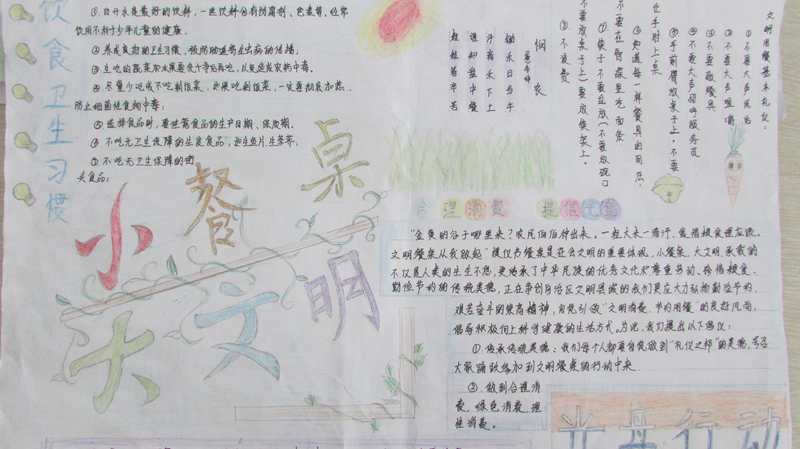 饮食卫生习惯
①白开水是最好的饮料，一些饮料含有防腐剂、色素等，经常
饮用不利于少年儿童的健康。
②养成良好的卫生习惯，预防肠道寄生虫病的传播。
③生吃的蔬菜和水果要洗干净后再吃，以免造成农药中毒。
④尽量少吃或不吃剩饭菜，如需吃剩饭菜，一定要彻底加热，
防止细菌性食物中毒。
⑤选择食品时，要注意食品的生产日期、保质期。
⑥不吃无卫生保障的生食食品，如生鱼片生荸荠。
⑦不吃无卫生保障的街
头食品。
小餐桌
大文明
文明用餐基本礼仪：
①不要大声说话
②不要大声咀嚼
③不要敲餐具
④不要大声呼叫服务员
⑤手前臂放桌子上，不要
⑥知道每一样餐具的用处
不要在餐桌里吃面条
不浪费
悯农
锄禾日当午
汗滴禾下土
谁知盘中餐
粒粒皆辛苦
合理消费 提倡文明
“金黄的谷子哪里来？农民伯伯种出来。一起大米一滴汗，
文明餐桌从我做起”提倡节俭用餐是社会文明的重要体现，小餐桌、大文明，承载的
不仅是人类的生生不息，更传承了中华民族的优秀文化和尊重劳动、珍惜粮食、
勤俭节约的传统美德。
艰苦奋斗的崇高精神，自觉引领“文明消费、节约用餐”的良好风尚，
倡导积极向上科学健康的生活方式。为此，我们提出以下倡议：
①传承传统美德：我们每个人都要自觉做到“礼仪之邦”的美德，
大家踊跃参加到文明餐桌的行动中来
②做到合理消
费，绿色消费，理
性消费。
光盘行动